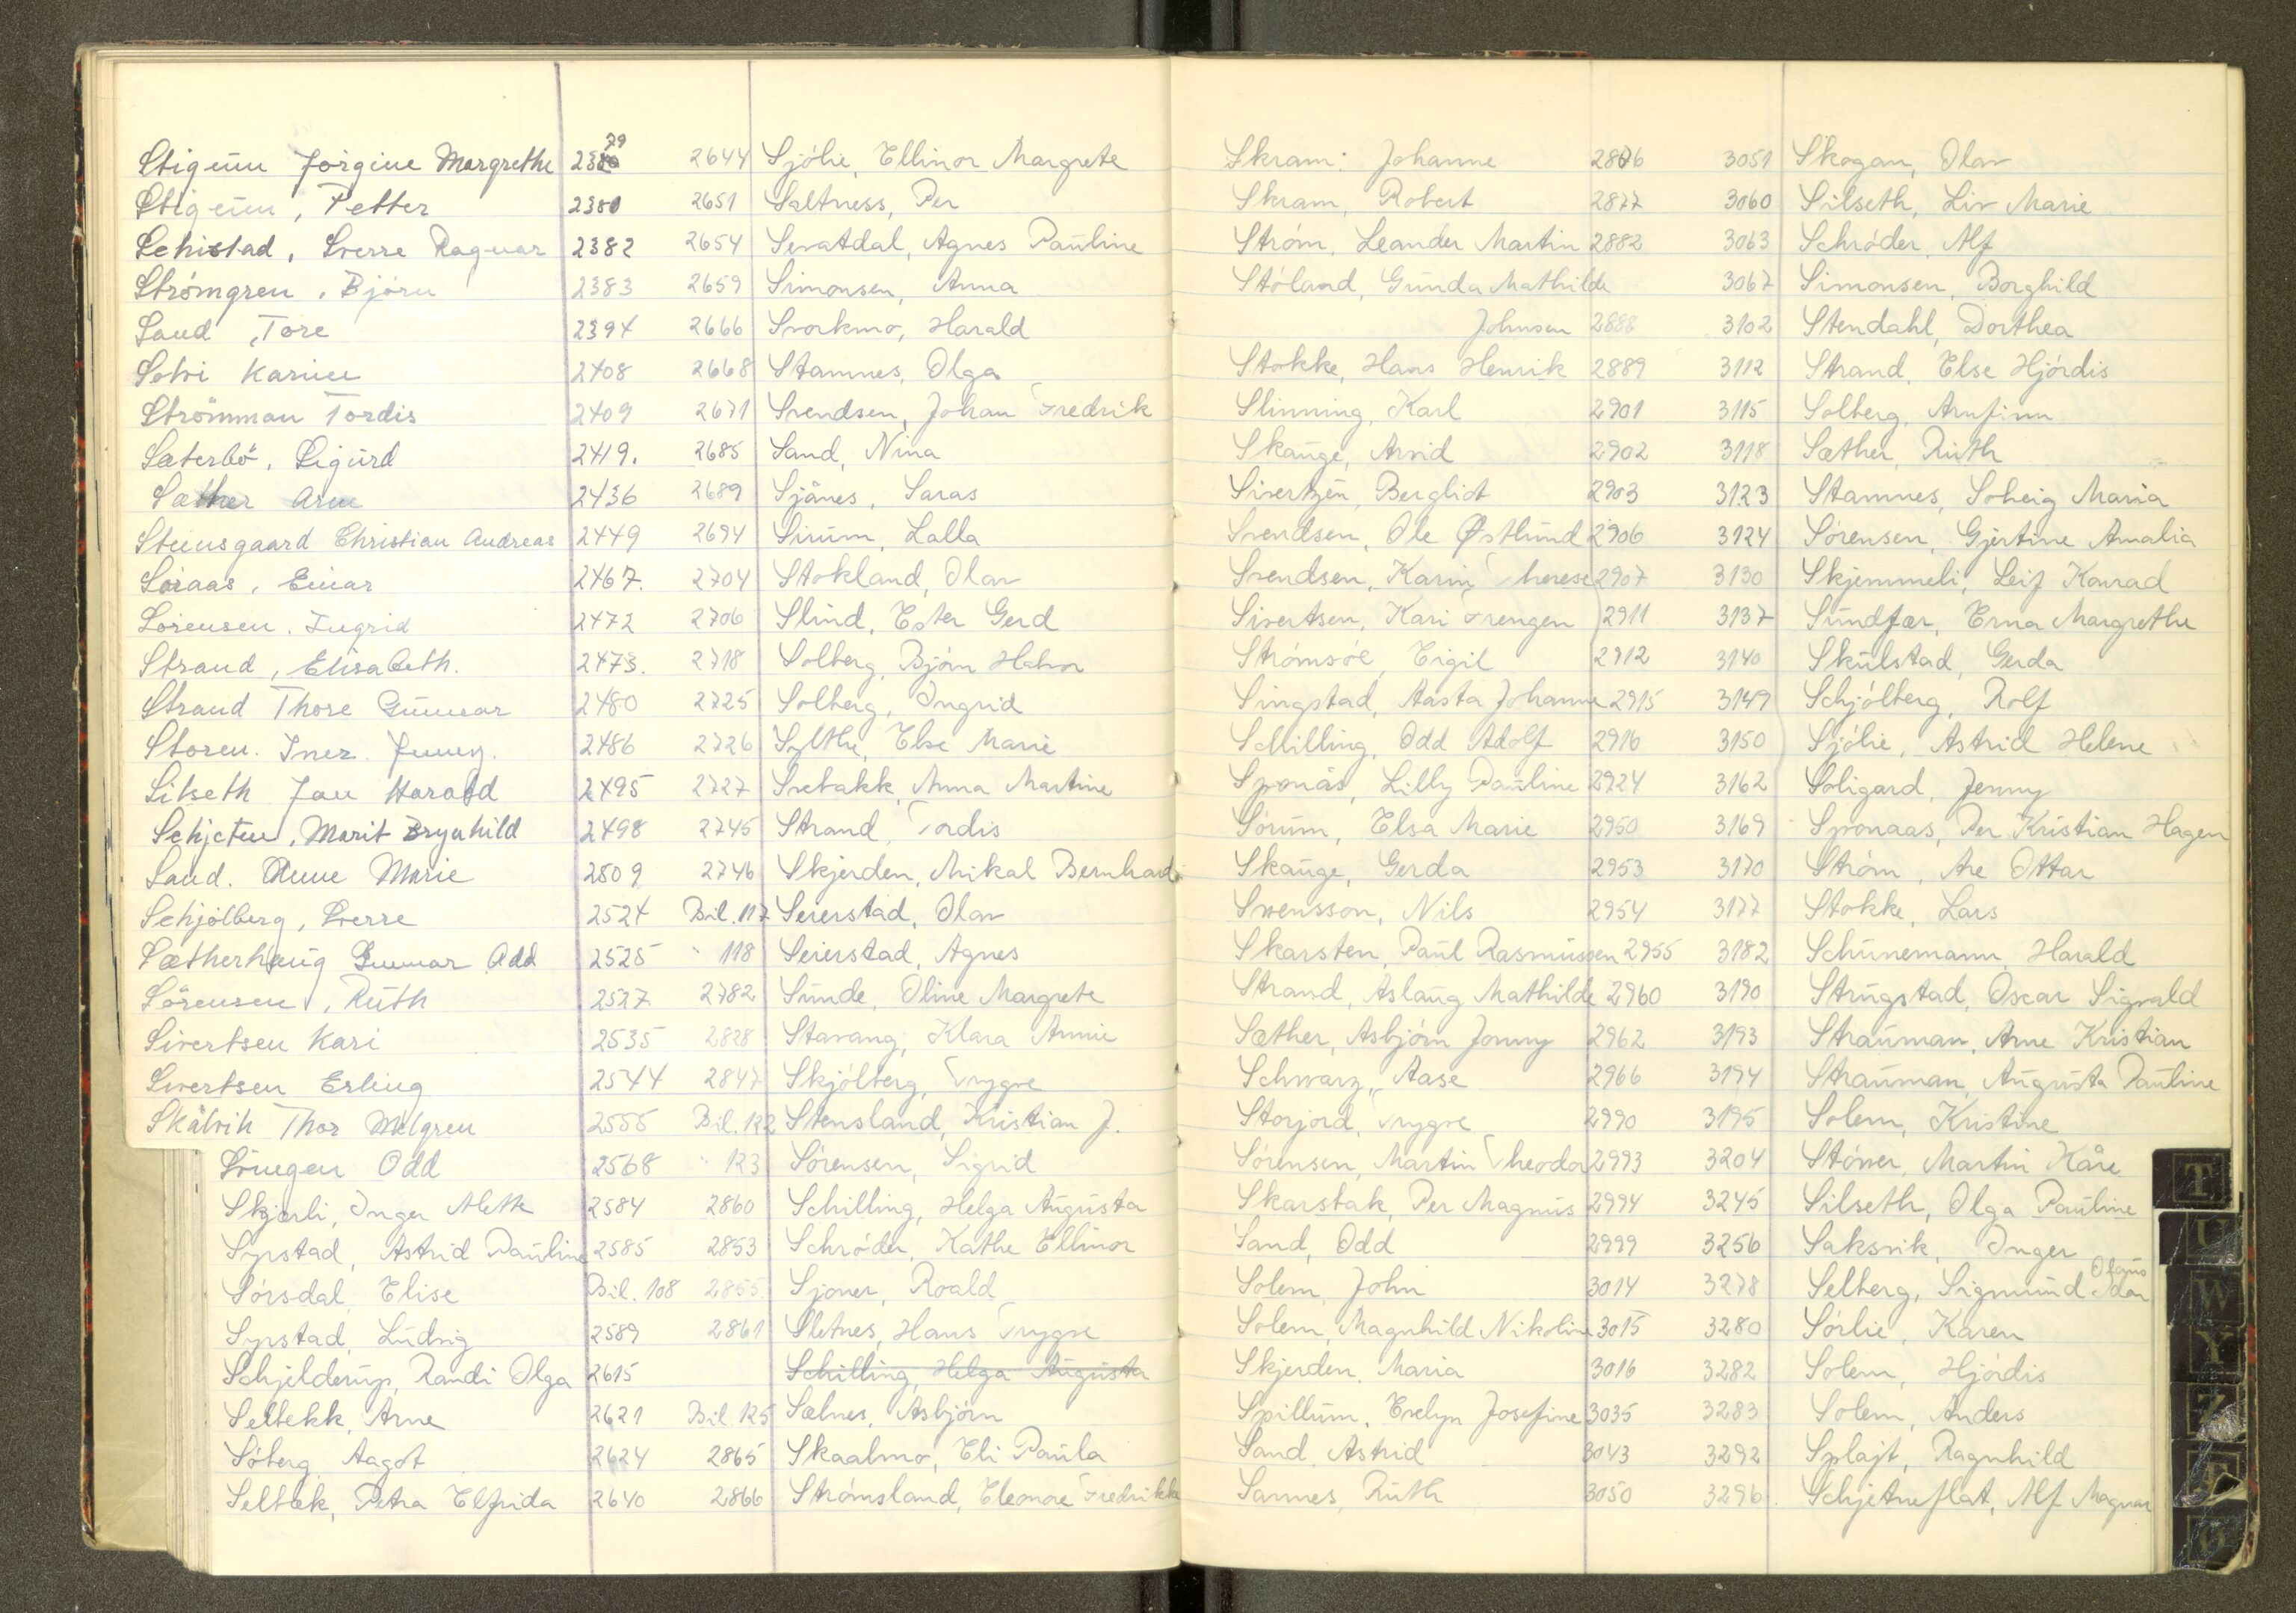 Stigum Jörgine Margrethe 2379
Stigum, Petter 2380
Schistad, Sverre Ragnar 2382
Strömgren, Björn 2383
Sand, Tore 2394
Solvi Karine 2408
Strömman Tordis 2409
Sæterbö, Sigurd 2419.
Sæther Arne 2436
Steinsgaard Christian Andreas 2449
Soraas, Einar 2467.
Sörensen. Ingrid 2472
Strand, Elisabeth. 2473.
Strand Thore Gunnar 2480
Storen. Inez. Jenny. 2486
Silseth Jan Harald 2495
Schjeten, Marit Brynhild 2498
Sand. Anne Marie 2509
Schjölberg, Sverre 2524
Sætherhaug Gunnar Odd 2525
Sörensen, Ruth 2527
Sivertsen Kari 2535
Sivertsen Erling 2544
Skålvik Thor Melgren 2555
Odd 2568
Skjærli, Inger Alette 2584
Syrstad, Astrid Pauline 2585
Sörsdal, Elise Bil. 108
Syrstad, Ludvig 2589
Schjelderup, Randi Olga 2615
Selbekk, Arne 2621
Söberg, Aagot 2624
Selbæk, Petra Elfrida 2640
2644 Sjölie, Ellinor Margrete
2651 Saltness, Per
2654 Sevatdal, Agnes Pauline
2659 Simonsen, Anna
2666 Svorkmo, Harald
2668 Stamnes, Olga
2671 Svendsen, Johan Fredrik
2685 Sand, Nina
2689 Sjånes, Saras
2694 Sirum, Lalla
2704 Stokland, Olav
2706 Slind, Ester Gerd
2718 Solberg, Björn Halvor
2725 Solberg, Ingrid
2726 Sylthe, Else Marie
2727 Svebakk, Anna Martine
2745 Strand, Tordis
2746 Skjerden, Mikal Bernhard
Bil. 117 Seierstad, Olav
" 118 Seierstad, Agnes
2782 Sunde, Oline Margrete
2828 Stavang, Klara Annie
2847 Skjölberg, Trygve
Bil. 122 Stensland, Kristian J.
" 123 Sörensen, Sigrid
2860 Schilling, Helga Augusta
2853 Schröder, Kathe Ellinor
2855 Sjoner, Roald
2861 Sletnes, Hans Trygve
Schilling, Helga Augusta
Bil. 125 Sælnes, Asbjörn
2865 Skaalmo, Eli Paula
2866 Strömsland, Eleonore Fredrikke
Skram: Johanne 2876
Skram, Robert 2877
Ström, Leander Martin 2882
Stöland, Gunda Mathilde
Johnsen 2888
Stokke, Hans Henrik 2889
Slinning, Karl 2901
Skauge, Arvid 2902
Sivertzen, Bergliot 2903
Svendsen, Ole Østlund 2906
Svendsen, Karin Therese 2907
Sivertsen, Kari Frengen 2911
Strömsöe, Eigil 2912
Singstad, Aasta Johanne 2915
Schilling, Odd Adolf 2916
Sponås, Lilly Pauline 2924
Sörum, Elsa Marie 2950
Skauge, Gerda 2953
Swensson, Nils 2954
Skarsten, Paul Rasmussen 2955
Strand, Aslaug Mathilde 2960
Sæther, Asbjörn Jonny 2962
Schwarz, Aase 2966
Storjord, Trygve 2990
Sörensen, Martin Theodor 2993
Skarstak, Per Magnus 2994
Sand, Odd 2999
Solem, John 3014
Solem, Magnhild Nikoline 3015
Skjerden, Maria 3016
Spillum, Evelyn Josefine 3035
Sand, Astrid 3043
Sannes, Ruth 3050
3051 Skogan, Olav
3060 Silseth, Liv Marie
3063 Schröder, Alf
3067 Simonsen, Borghild
3102 Stendahl, Dorthea
3112 Strand, Else Hjördis
3115 Solberg, Arnfinn
3118 Sæther, Ruth
3123 Stamnes, Solveig Maria
3124 Sörensen, Gjertine Amalia
3130 Skjemmeli, Leif Konrad
3137 Sundfær, Erna Margrethe
3140 Skulstad, Gerda
3149 Schjölberg, Rolf
3150 Sjölie, Astrid Helene
3162 Soligard, Jenny
3169 Sponaas, Per Kristian Hagen
3170 Ström, Are Ottar
3177 Stokke, Lars
3182 Schünemann, Harald
3190 Strugstad, Oscar Sigvald
3193 Strauman, Arne Kristian
3194 Strauman, Augusta Pauline
3195 Solem, Kristine
3204 Stöver, Martin Kåre
3245 Silseth, Olga Pauline
3256 Saksvik, Inger
Olaus
3278 Selberg, Sigmund
3280 Sörlie, Karen
3282 Solem, Hjördis
3283 Solem, Anders
3292 Splajt, Ragnhild
3296 Schjetneflat, Alf Magnar
T
U
W
Y
Z
Æ
Ø